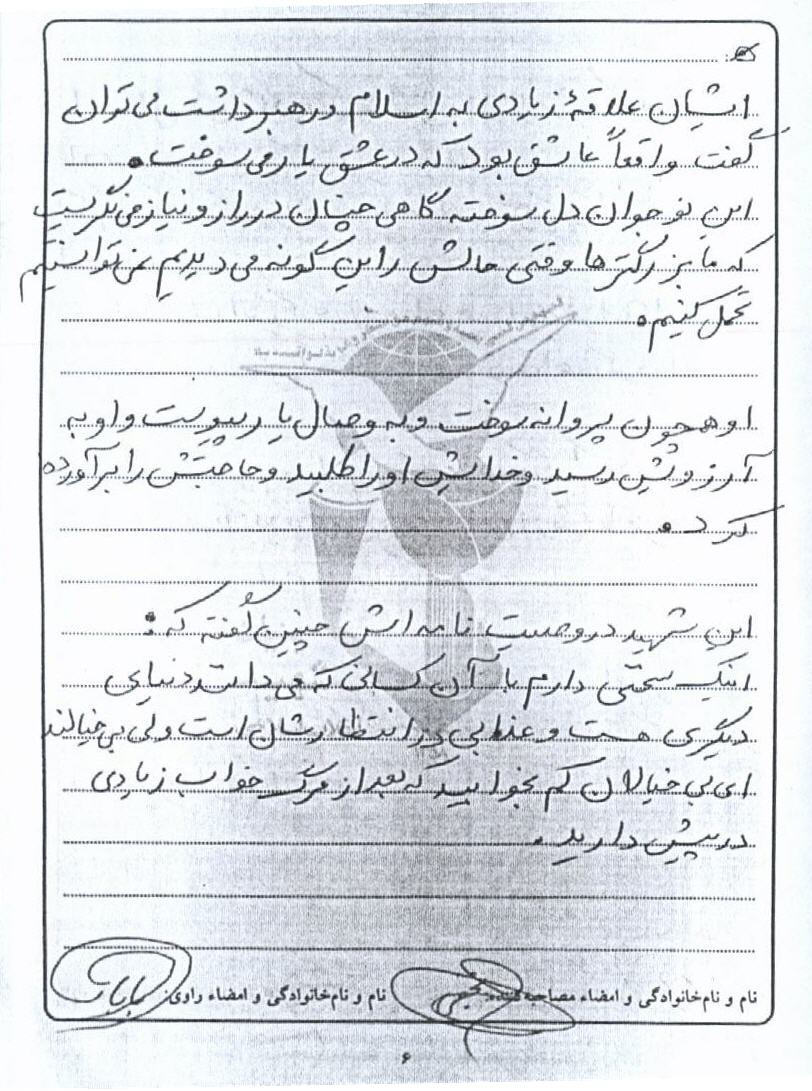 ایشان علاقهٔ زیادی به اسلام و رهبر داشت می توان
گفت واقعاً عاشق بود که در عشق یار می سوخت.
این نوجوان دل سوخته گاهی چنان در راز و نیاز می نگریست
که ما بزرگترها وقتی حالش را این گونه می دیدیم نمی توانستیم
تحمل کنیم.
او همچون پروانه سوخت و به وصال یار پیوست و او به
آرزویش رسید و خدایش او را طلبید و حاجتش را برآورده
کرد.
این شهید در وصیت نامه اش چنین گفته که:
اینک سخنی دارم با آن کسانی که می دانند دنیای
دیگری هست و عذابی در انتظارشان است ولی بی خیالند
ای بی خیالان کم بخوابید که بعد از مرگ خواب زیادی
در پیش دارید.
نام و نام خانوادگی و امضاء مصاحبه کننده: نام و نام خانوادگی و امضاء راوی:
۶